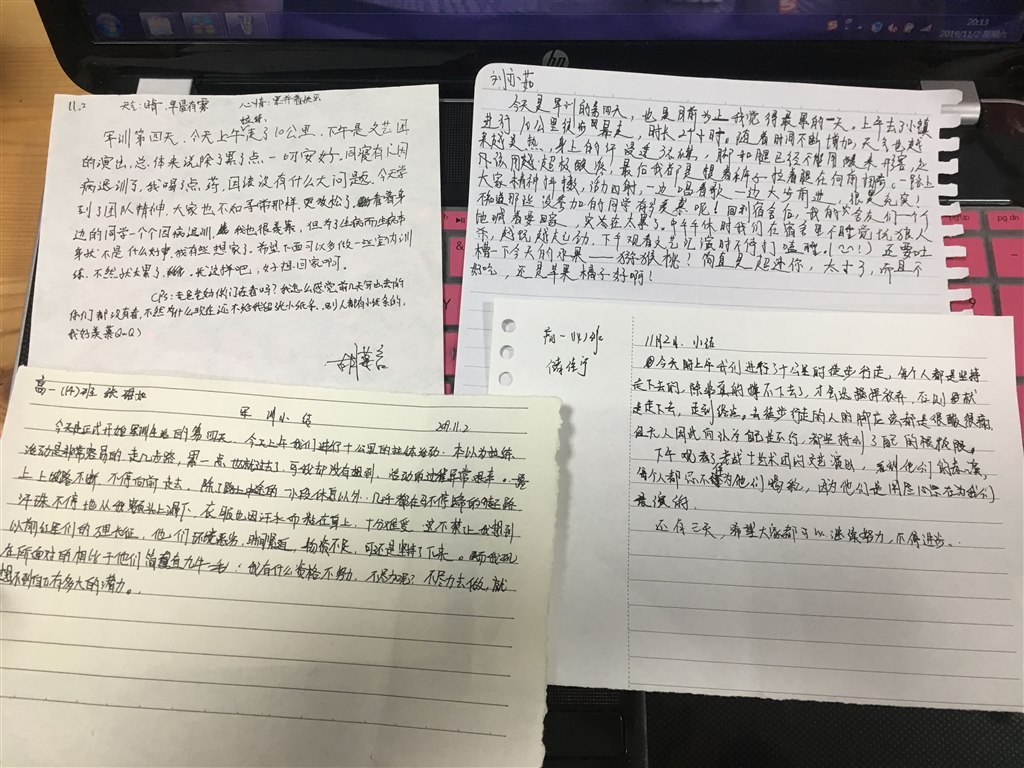 20:13
2019/11/2 星期六
hp
11.2 天气:晴,早晨有雾 心情:累并着快乐
拉练,
军训第四天,今天上午走了10公里,下午是文艺团
的演出,总体来说除了累了点,一切安好,同寝有人因
病退训了,我喝了点药,因该没有什么大问题,今天学
到了团队精神,大家也不似予带那样,更放松了,看着身
边的同学一个个因病退训,他也很羡慕,但为了生病而生病本
身就不是什么好事,我有些想家了。希望下面可以多做一些室内训
练,不然太累了,就这样吧,好想回家啊。
(PS:老老师你们在看吗?我怎么感觉前几天写出去的
你们都没有看,不然为什么现在还不给我留张小纸条,别人都有小纸条的,
我好羡慕QnQ)
刘亦茹
今天是军训的第四天,也是目前为止我觉得最累的一天。上午去了小镇
进行10公里徒步,时长2个小时。随着时间不断增加,天气也越
来越炎热,身上的汗浸透了衣襟,脚和腿已经不能用酸来形容,应
该用超超超级酸,最后我都是提着裤子拉着腿在向前
大家精神抖擞,活力四射,一边唱着歌一边大步前进,很是充实!
不知道那些没参加的同学有多羡慕呢!回到宿舍后,我的舍友们一个个
地喊着要回家,实在太累了。中午午休时我们在宿舍里不睡觉玩狼人
杀,越玩越激动,下午观看文艺汇演时不停打瞌睡。还要吐
槽一下今天的水果——猕猴桃!简直是超迷你,太小了,而且不
好吃,还是苹果橘子好啊!
pg up
pg dn
高一(14)班 张
军训小结 2019.11.2
今天是正式开始军训生活的第四天,今天上午我们进行十公里的拉练活动,本以为拉练
活动是非常容易的走几步路,累一点也就过去了,可我却没有想到,活动的过程异常艰辛。
上上坡路不断,不停向前走去,除了路上中途的一小段休息以外,几乎都在马不停蹄的赶路
汗珠不停地从我额头上滴下,衣服也因汗水而黏在身上,十分难受,这不禁让我想到
以前红军们的二万里长征,他们环境恶劣,时间紧迫,物资不足,可还是坚持了下来。而我现
在所面对的相比于他们简直是九牛一毛,我有什么资格不努力,不尽力呢?不尽力去做,就
想不到自己有多大的潜力。
高一(14)班
储佳宁
11月2日 小结
今天的上午我们进行了十公里的徒步行走,每个人都是坚持
走下去的,除非真的撑不下去了,才会选择放弃,否则
走下去,走到终点。去徒步行走的人的脚应该都是很酸很痛,
但无人因此而认为自己不行,都坚持到了自己的极限。
下午观看了老战士艺术团的文艺演出,看到他们的表演,
每个人都忍不住为他们喝彩,因为他们是用尽心思在为我们
表演的。
还有三天,希望大家都可以继续努力,不停进步。